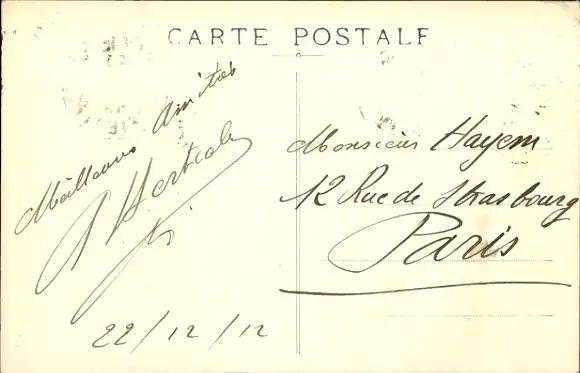 CARTE POSTALE
Meilleures Amitiés
22/12/12
Monsieur Hayem
12 Rue de Strasbourg
Paris